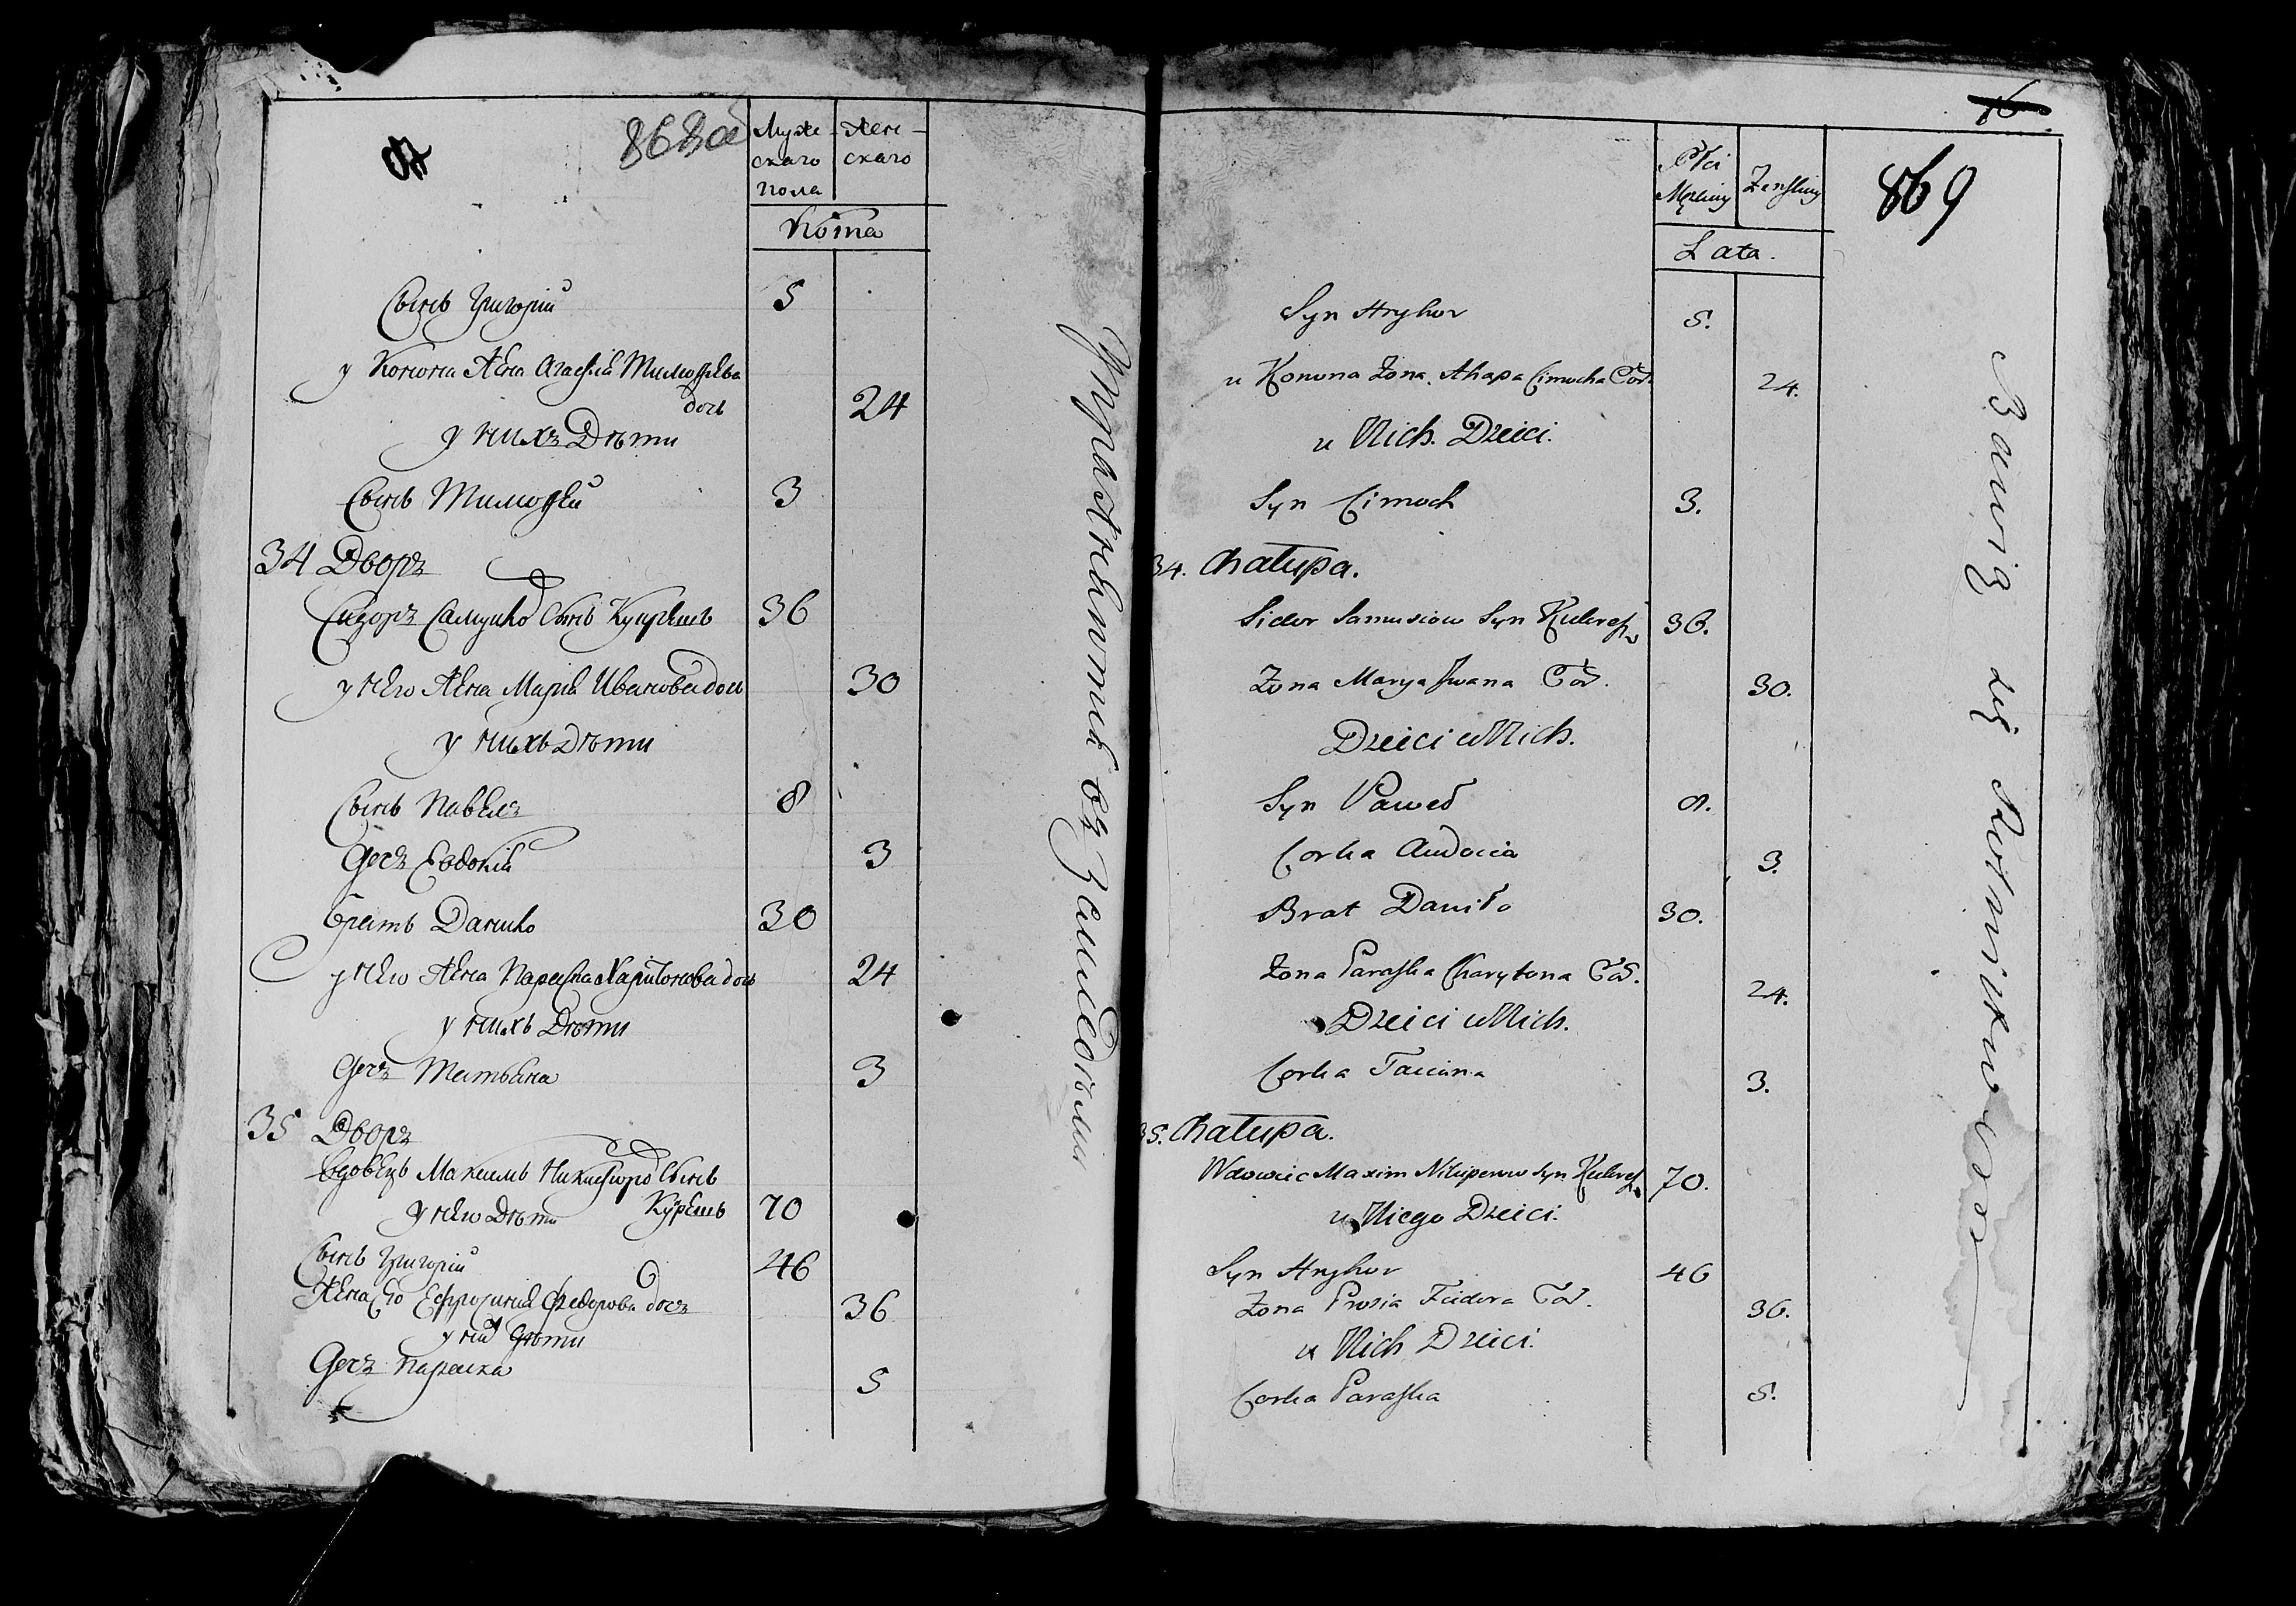 868 об
Муже-
скаго
пола
Жен-
скаго
Лѣта
Сынъ Григорiй 5
у Конона Жена Агафiя Тимофѣева
дочь 24
у нихъ Дѣти
Сынъ Тимофей 3
34 Дворъ
Сидоръ Самуйло Сынъ 36
у него Жена Марiя Иванова дочь 30
у нихъ Дѣти
Сынъ Павелъ 8
Дочь Евдокiя 3
Братъ Данило 30
у него Жена Параска Харитонова дочь 24
у нихъ Дѣти
Дочь Татьяна 3
35 Дворъ
Вдовецъ Максимъ Никифоровъ Сынъ
у него Дѣти Курешъ 70
Сынъ Григорiй 46
Жена Его Ефросинiя Федорова дочь 36
у них Дѣти
Дочь Параска 5
16
869
Płci
Męzkiey
Zenskiey
Lata.
Syn Hryhor 5.
u Konona Zona Ahapa Cimocha Cor. 24.
u Nich. Dzieci.
Syn Cimoch 3.
34. Chałupa.
Sidor Samusiow Syn 36.
Zona Marya Jwana Cor. 30.
Dzieci u Nich.
Syn Paweł 8.
Corka Audocia 3.
Brat Daniło 30.
Zona Paraska Charytona Cor. 24.
Dzieci u Nich.
Corka Taciana 3.
35. Chałupa.
Wdowiec Maxim Nikiperow Syn 70.
u Niego Dzieci.
Syn Hryhor 46
Zona Prosia Fiedora Cor. 36.
u Nich Dzieci.
Corka Paraska 5.